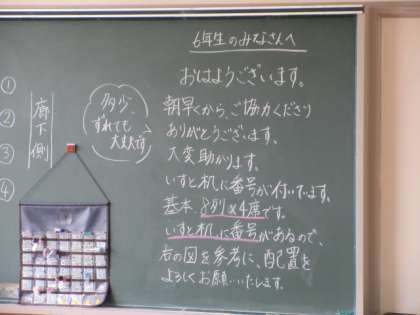 6年生のみなさんへ
おはようございます。
朝早くから、ご協力ください
ありがとうございます。
大変助かります。
いすと机に番号が付いています。
基本、8列×4席です。
いすと机に番号があるので、
右の図を参考に、配置を
よろしくお願いいたします。
多少、
ずれても
大丈夫です
廊下側
①
②
③
④